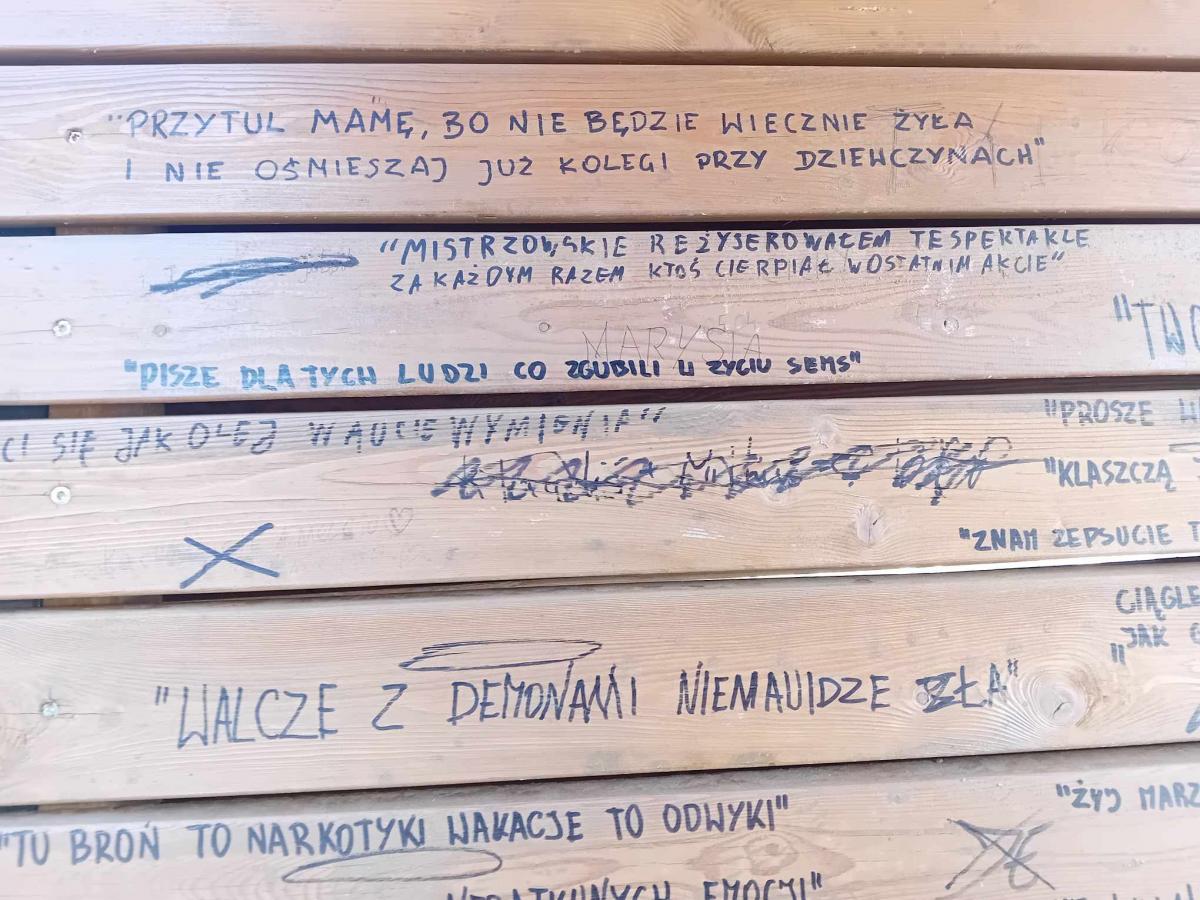 "PRZYTUL MAMĘ, BO NIE BĘDZIE WIECZNIE ŻYŁA
I NIE OŚMIESZAJ JUŻ KOLEGI PRZY DZIEWCZYNACH"
"MISTRZOWSKIE REŻYSEROWAŁEM TE SPEKTAKLE
ZA KAŻDYM RAZEM KTOŚ CIERPIAŁ W OSTATNIM AKCIE"
"TWO
MARYSIA
"PISZE DLA TYCH LUDZI CO ZGUBILI W ZYCIU SENS"
CI SIĘ JAK OLEJ W AUCIE WYMIENIA"
"PROSZE W
"KLASZCZĄ
"ZNAM ZEPSUCIE T
CIĄGLE
"JAK
"WALCZE Z DEMONAMI NIENAWIDZE ZŁA"
"ŻYJ MARZ
"TU BROŃ TO NARKOTYKI WAKACJE TO ODWYKI"
NEGATYWNYCH EMOCJI"